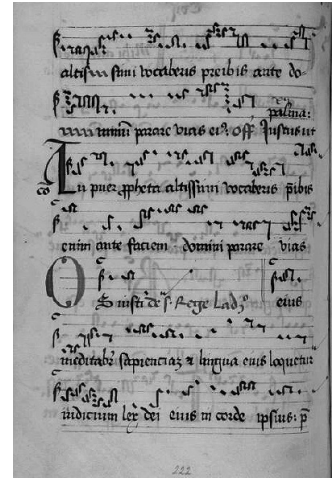 altissimi vocaberis preibis ante do-
palma:
mini parare vias eiꝰ. off. Justus ut
Tu puer ꝓpheta altissimi vocaberis p̄ibis
enim ante faciem domini parare vias
Os iusti de s. Rege Ladzo eius
meditabr̄ sapienciaz ⁊ lingua eius loquetur
iudicium lex dei eius in corde ipsius: p̄
222